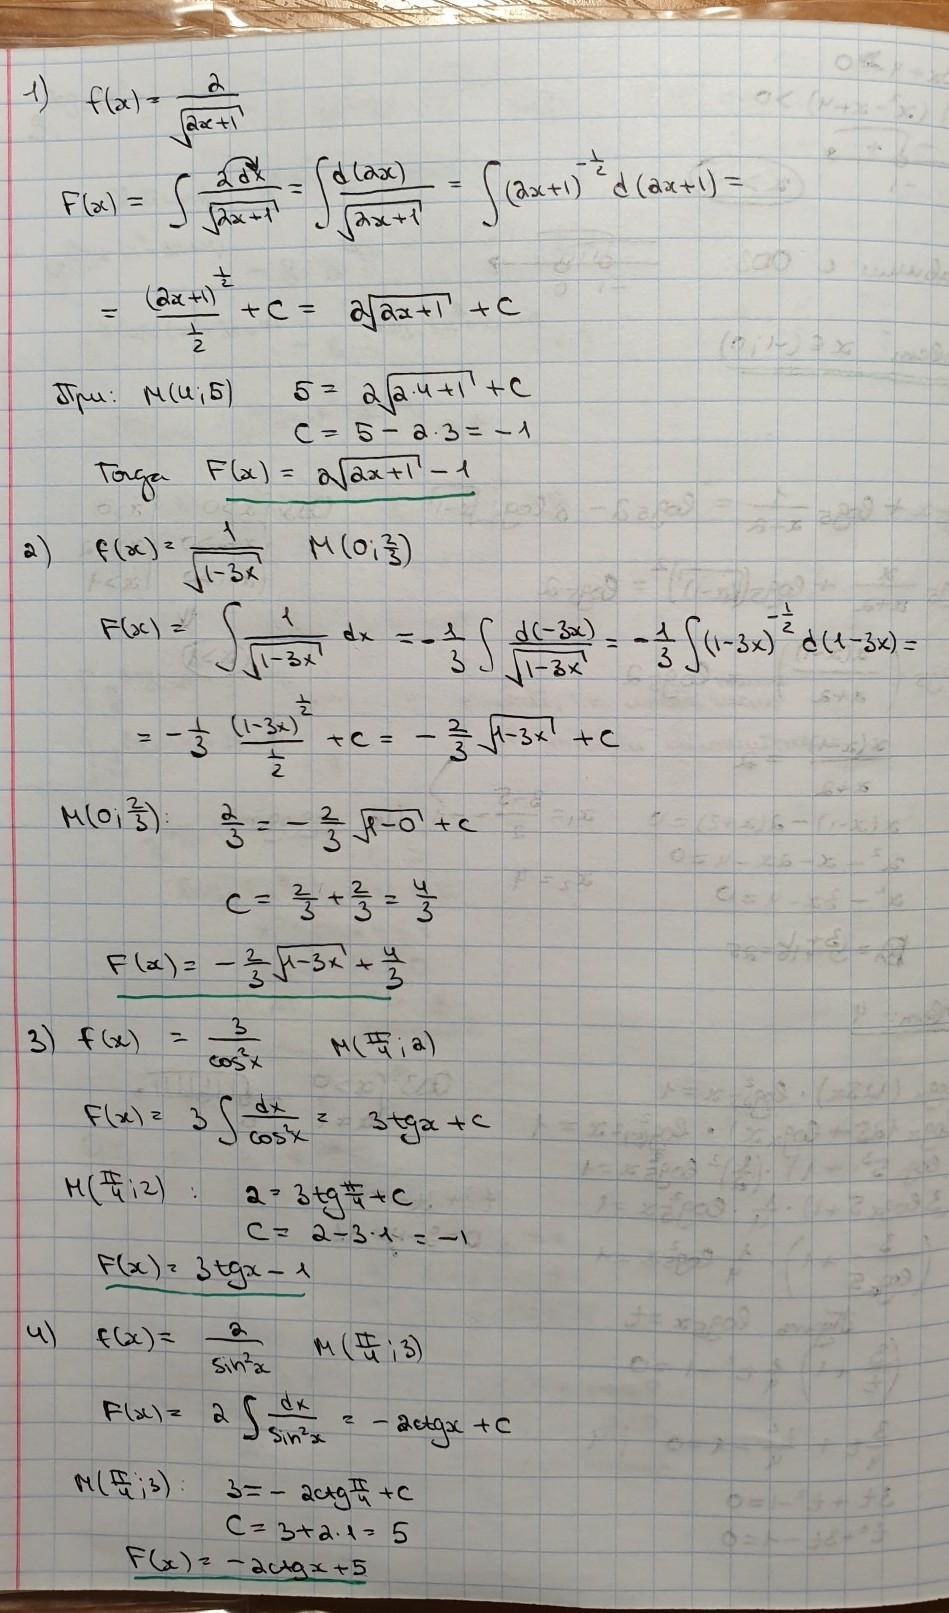 1) f(x) = 2/√(2x+1)
F(x) = ∫ 2dx/√(2x+1) = ∫ d(2x)/√(2x+1) = ∫ (2x+1)^(-1/2) d(2x+1) =
= (2x+1)^(1/2)/(1/2) + C = 2√(2x+1) + C
При: M(4;5) 5 = 2√(2·4+1) + C
C = 5 - 2·3 = -1
Тогда F(x) = 2√(2x+1) - 1
2) f(x) = 1/√(1-3x) M(0; 2/3)
F(x) = ∫ 1/√(1-3x) dx = -1/3 ∫ d(-3x)/√(1-3x) = -1/3 ∫ (1-3x)^(-1/2) d(1-3x) =
= -1/3 (1-3x)^(1/2)/(1/2) + C = -2/3 √(1-3x) + C
M(0; 2/3): 2/3 = -2/3 √(1-0) + C
C = 2/3 + 2/3 = 4/3
F(x) = -2/3 √(1-3x) + 4/3
3) f(x) = 3/cos²x M(π/4; 2)
F(x) = 3 ∫ dx/cos²x = 3tgx + C
M(π/4; 2): 2 = 3tg π/4 + C
C = 2-3·1 = -1
F(x) = 3tgx - 1
4) f(x) = 2/sin²x M(π/4; 3)
F(x) = 2 ∫ dx/sin²x = -2ctgx + C
M(π/4; 3): 3 = -2ctg π/4 + C
C = 3+2·1 = 5
F(x) = -2ctgx + 5